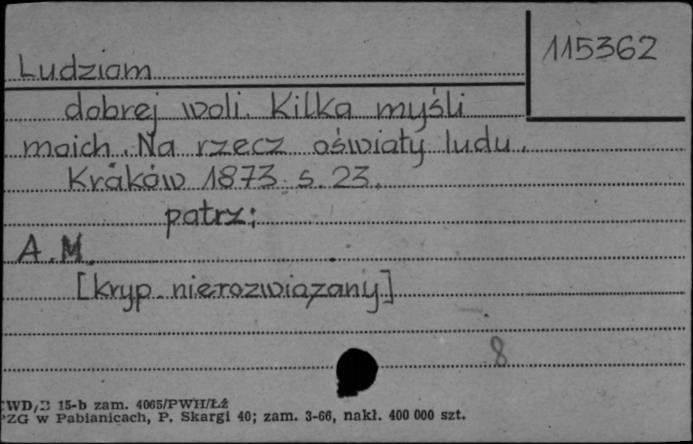 115362
Ludziom
dobrej woli. Kilka myśli
moich. Na rzecz oświaty ludu.
Kraków 1873 s. 23.
patrz:
A. M.
[kryp. nierozwiązany]
8
15-b zam. 4065/PWH/Łź
PZG w Pabianicach, P. Skargi 40; zam. 3-66, nakł. 400 000 szt.